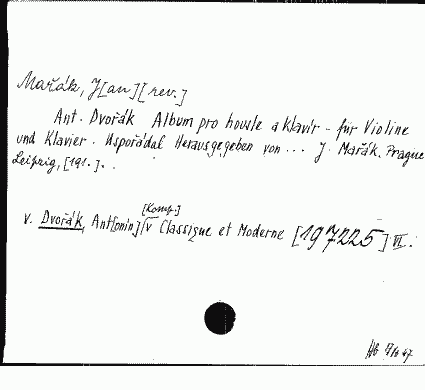 Mařák, J[an] [rev.]
Ant. Dvořák Album pro housle a klavír – für Violine
und Klavier. Uspořádal Herausgegeben von ... J. Mařák. Prague
Leipzig, [191.]. .
[Komp.]
v. Dvořák, Ant[onín] Classique et Moderne [197225] VI.